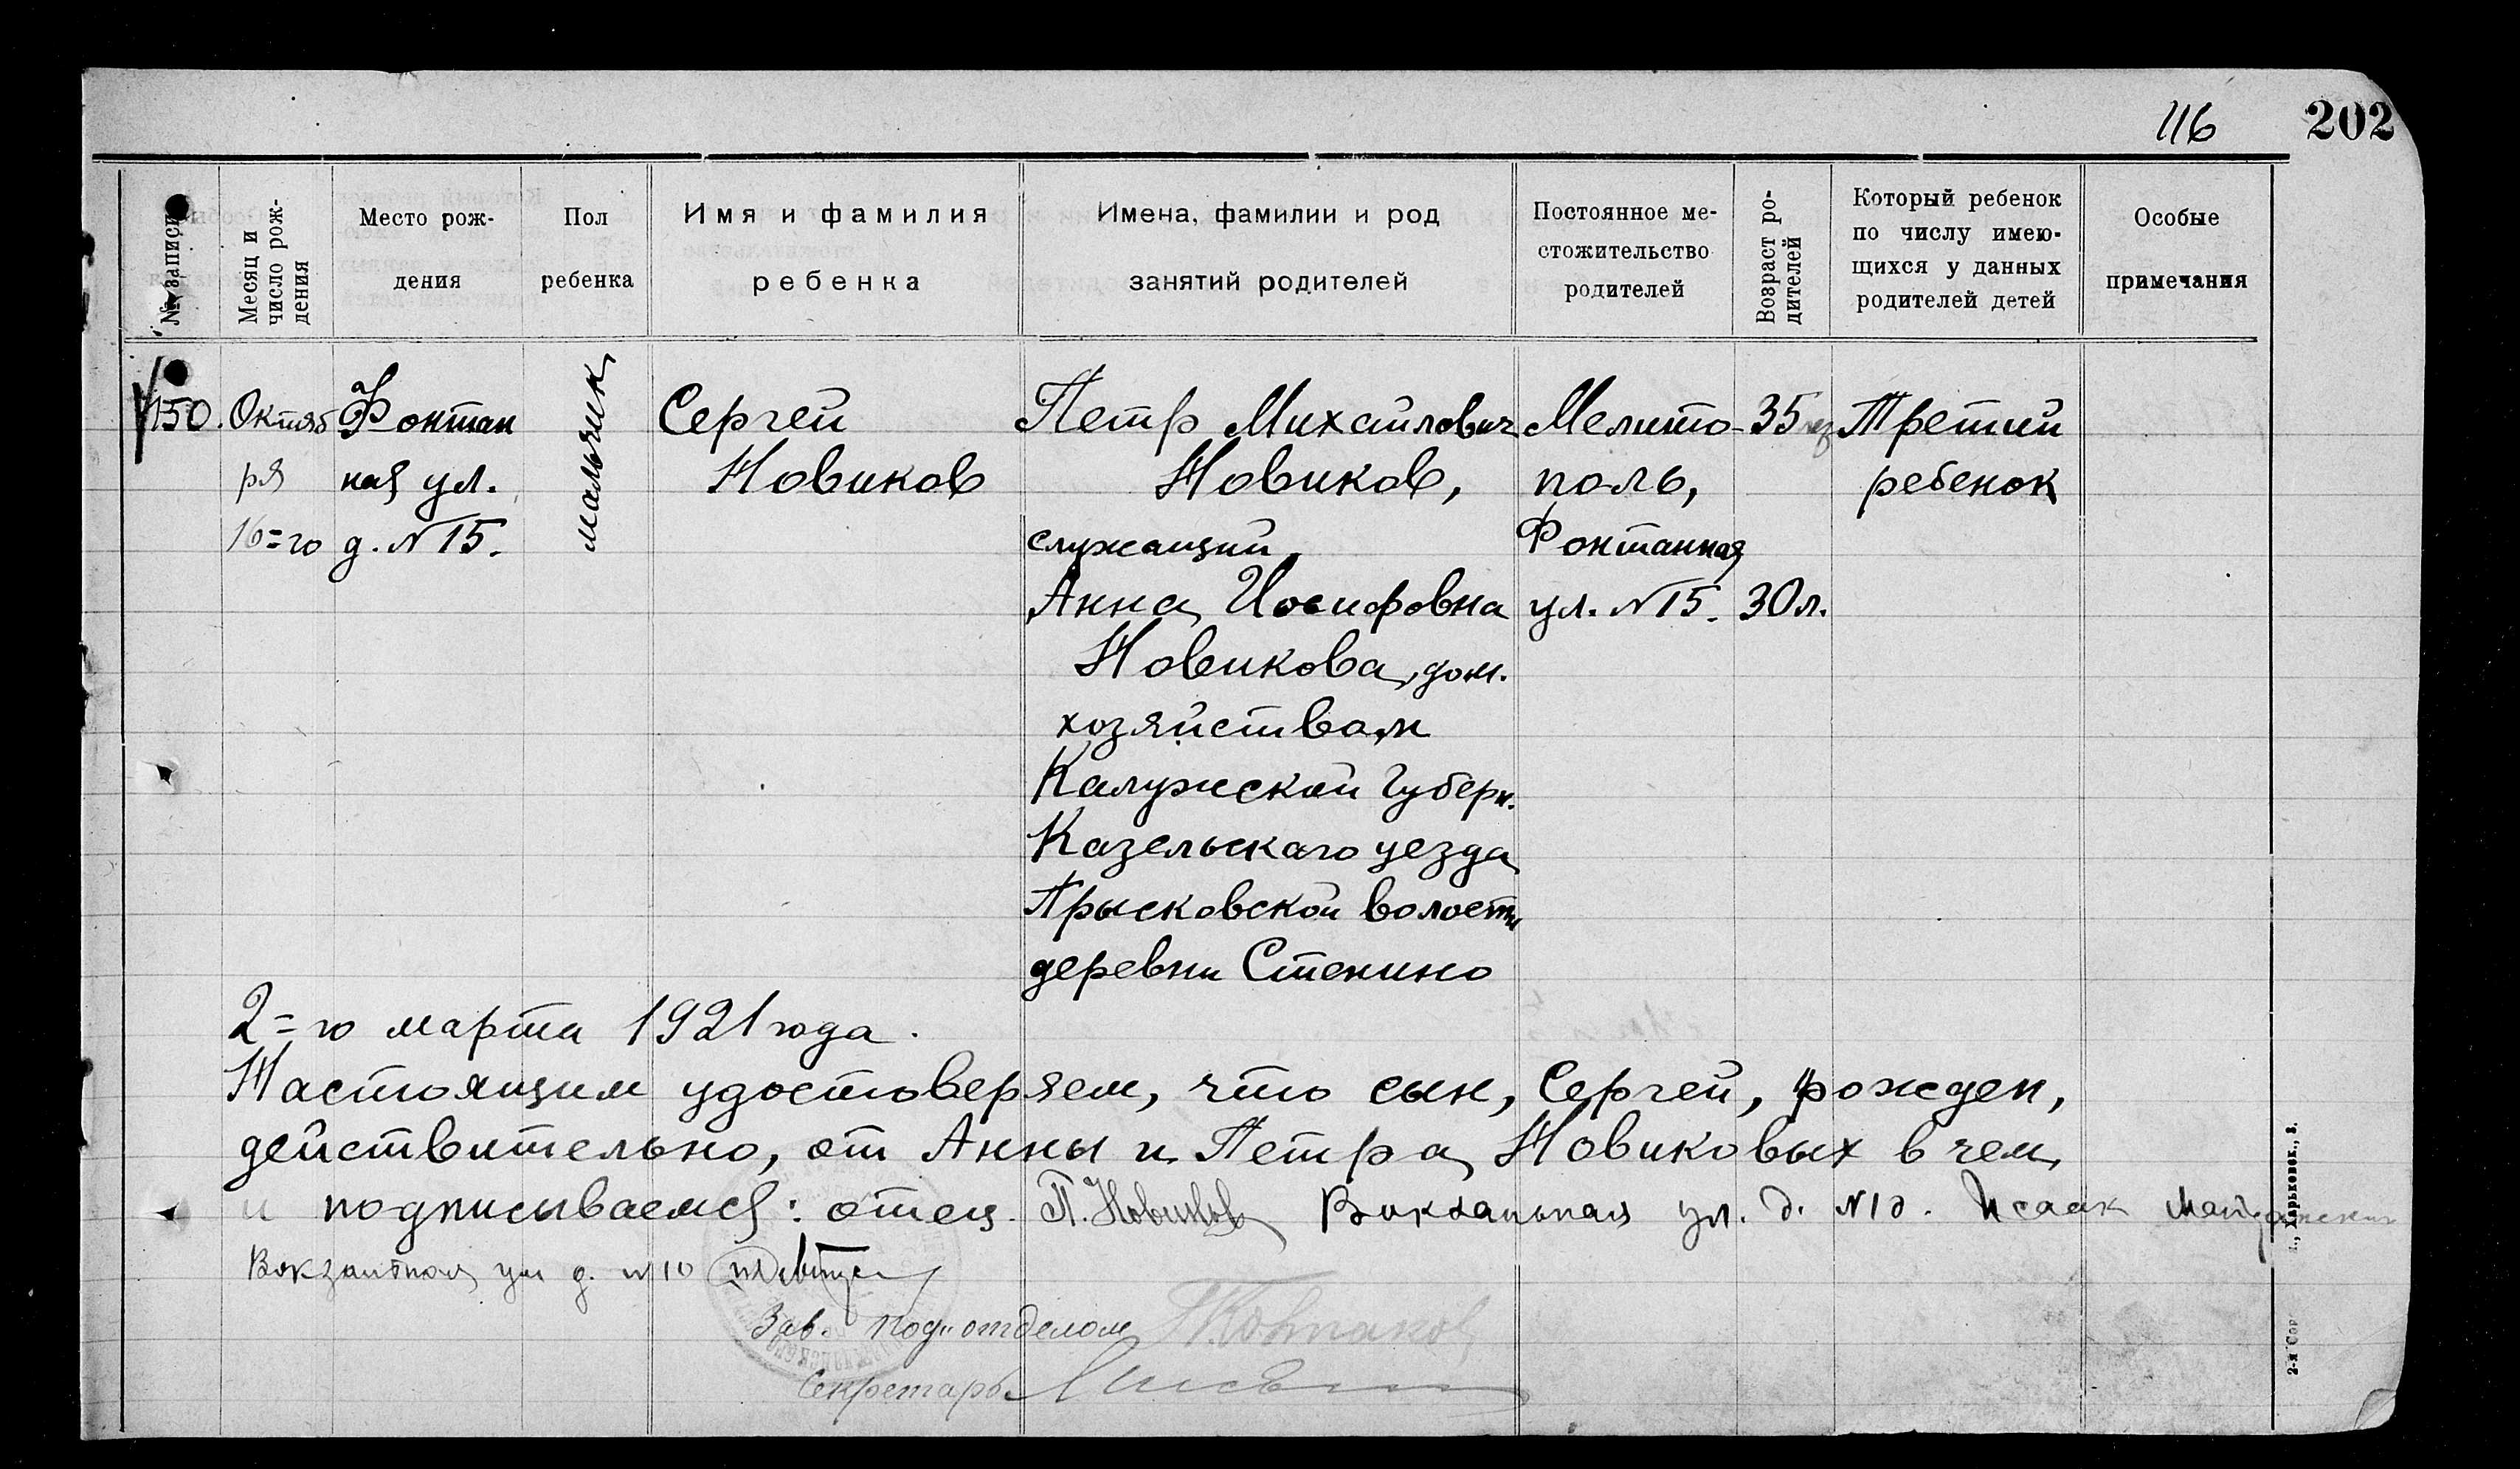 116 202
№ записи
Месяц и число рождения
Место рож-
дения
Пол
ребенка
Имя и фамилия
ребенка
Имена, фамилии и род
занятий родителей
Постоянное ме-
стожительство
родителей
Возраст ро-
дителей
Который ребенок
по числу имею-
щихся у данных
родителей детей
Особые
примечания
150.
Октяб
ря
16=го
Фонтан
ная ул.
д. N 15.
мальчик
Сергей
Новиков
Петр Михайлович
Новиков,
служащий
Анна Иосифовна
Новикова, дом.
хозяйствам
Калужской Губерн.
Казельскаго уезда
Прысковской волости
деревни Стенино
Мелито-
поль,
Фонтанная
ул. N 15.
35
30 л.
Третий
ребенок
2=го марта 1921 года.
Настоящим удостоверяем, что сын, Сергей, рожден,
действительно, от Анны и Петра Новиковых в чем
и подписываемся: отец П. Новиков Вокзальная ул. д. N 10. Исаак
Вокзальная ул д. N 10
Зав. под"отделом
Секретарь
Харьковск., 8.
2-я